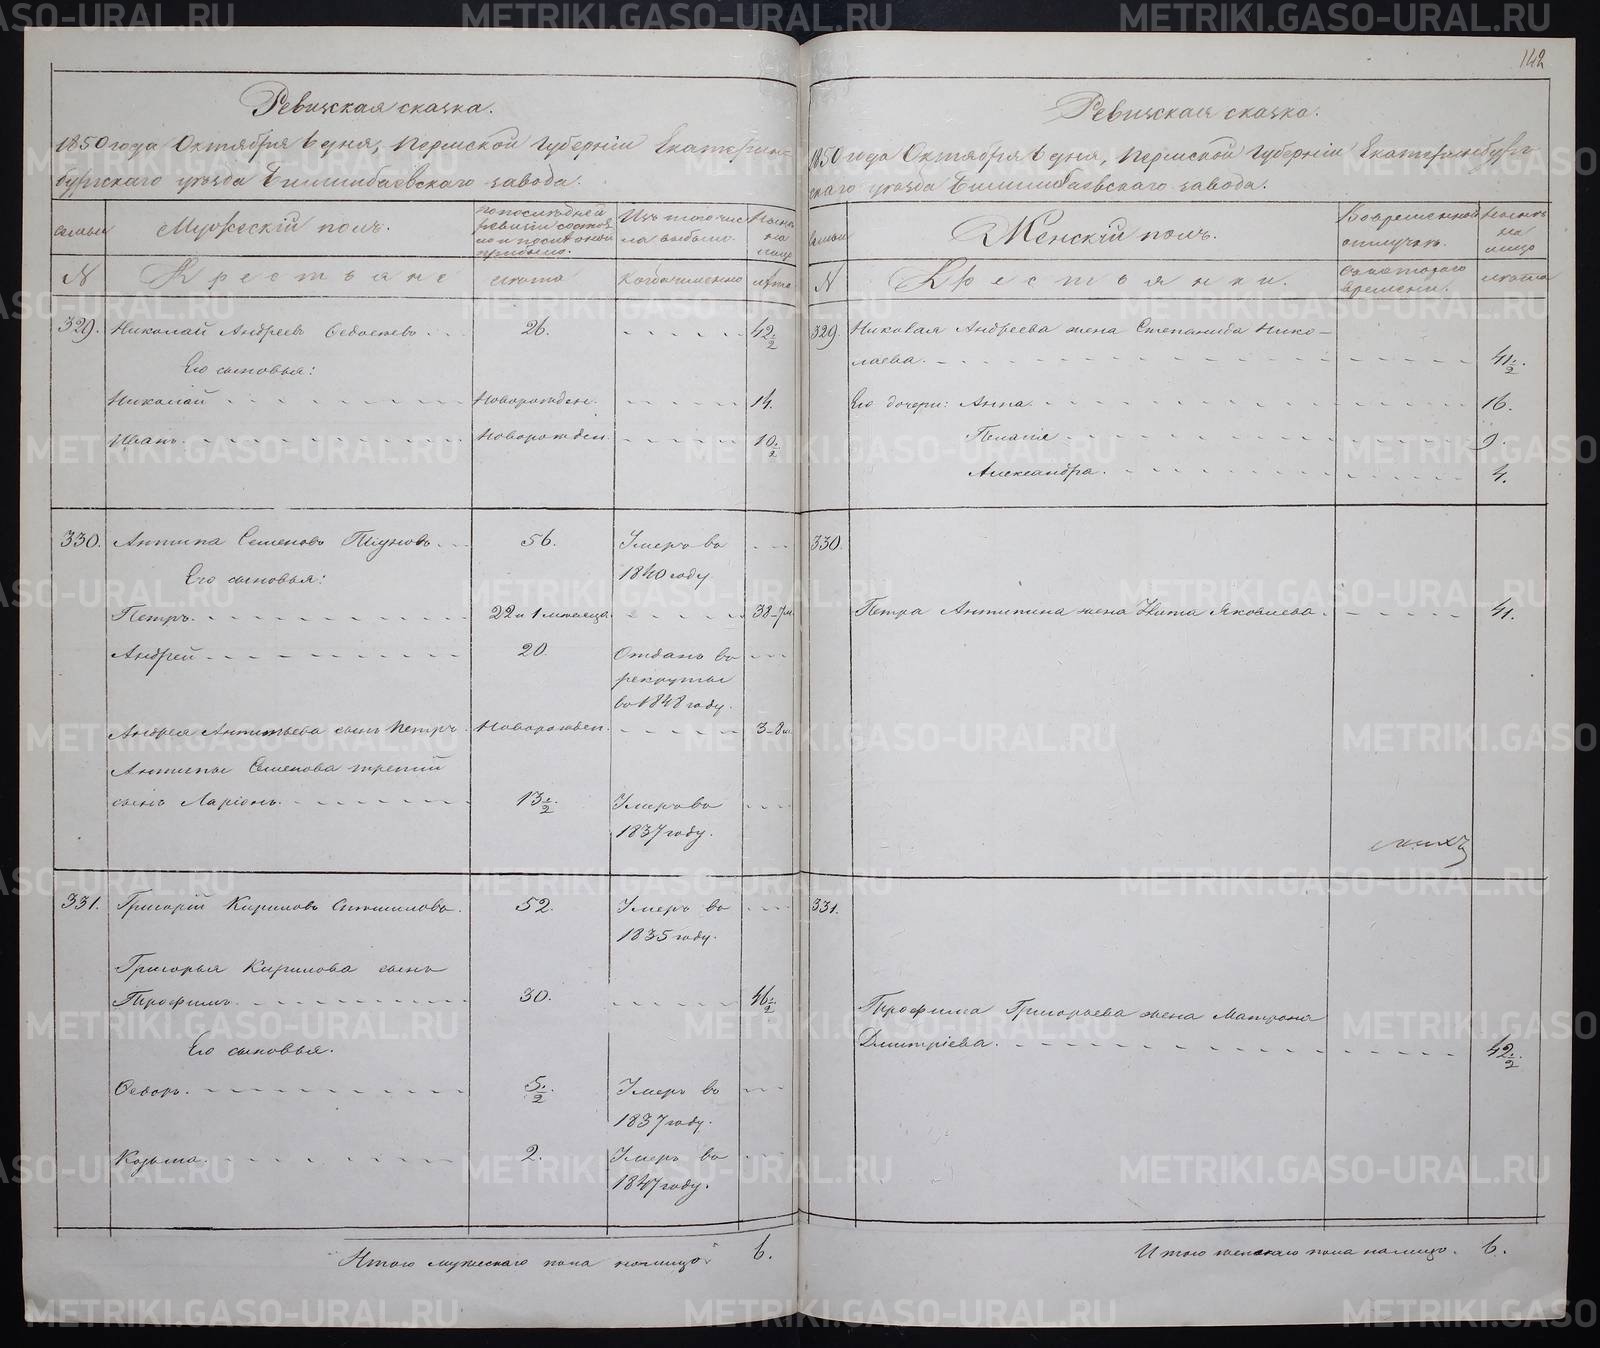 142
Ревижская сказка.
1850 года Октября 6 дня, Пермской Губерніи Екатерин-
бургскаго уѣзда Билимбаевскаго завода.
семьи
Мужескій полъ.
По последней
ревизіи состоя
ло и после оной
прибыло.
Изъ того чис
ла выбыло.
Нынѣ
на
лицо
N
Крестьяне
лѣта
Когда именно
лѣта
329. Николай Андреевъ - - - 26. - - - - - 42 1/2
Его сыновья:
Николай - - - - - - Новорожден. - - - - - 14.
Иванъ. - - - - - - Новорожден. - - - - - 10 1/2
330. Антипа Семеновъ - - - 56. Умеръ во - - -
1840 году.
Его сыновья:
Петръ. - - - - - - 22 и 1 мѣсяца. - - - - - 38-7м.
Андрей - - - - - - 20 Отданъ въ - - -
рекруты
въ 1848 году.
Андрея Антипьева сынъ Петръ. Новорожден. - - - - - 3-8м.
Антипы Семенова третій
сынъ Ларіонъ. - - - - - - 13 1/2. Умеръ во - - -
1837 году.
331. Григорій Кириловъ Ситниковъ. 52. Умеръ во - - -
1835 году.
Григорья Кирилова сынъ
Трофимъ. - - - - - - 30. - - - - - 46 1/2
Его сыновья.
Ѳедоръ. - - - - - - 5 1/2 Умеръ во - - -
1837 году.
Козьма. - - - - - - 2. Умеръ во - - -
1847 году.
Итого мужескаго пола налицо 6.
Ревижская сказка.
1850 года Октября 6 дня, Пермской Губерніи Екатеринбург-
скаго уѣзда Билимбаевскаго завода.
семьи
Женскій полъ.
Во временной
отлучкѣ.
Нынѣ
на
лицо
N
Крестьянки.
Съ котораго
времени.
лѣта
329. Николая Андреева жена Степанида Нико-
лаева. - - - - - - 41 1/2.
Его дочери: Анна. - - - - - - 16.
Пелагія - - - - - - 9.
Александра. - - - - - - 4.
330.
Петра Антипина жена Улита Яковлева. - - - - - - 41.
331.
Трофима Григорьева жена Матрона
Дмитріева. - - - - - - 42 1/2.
Итого женскаго пола налицо. 6.
METRIKI.GASO-URAL.RU